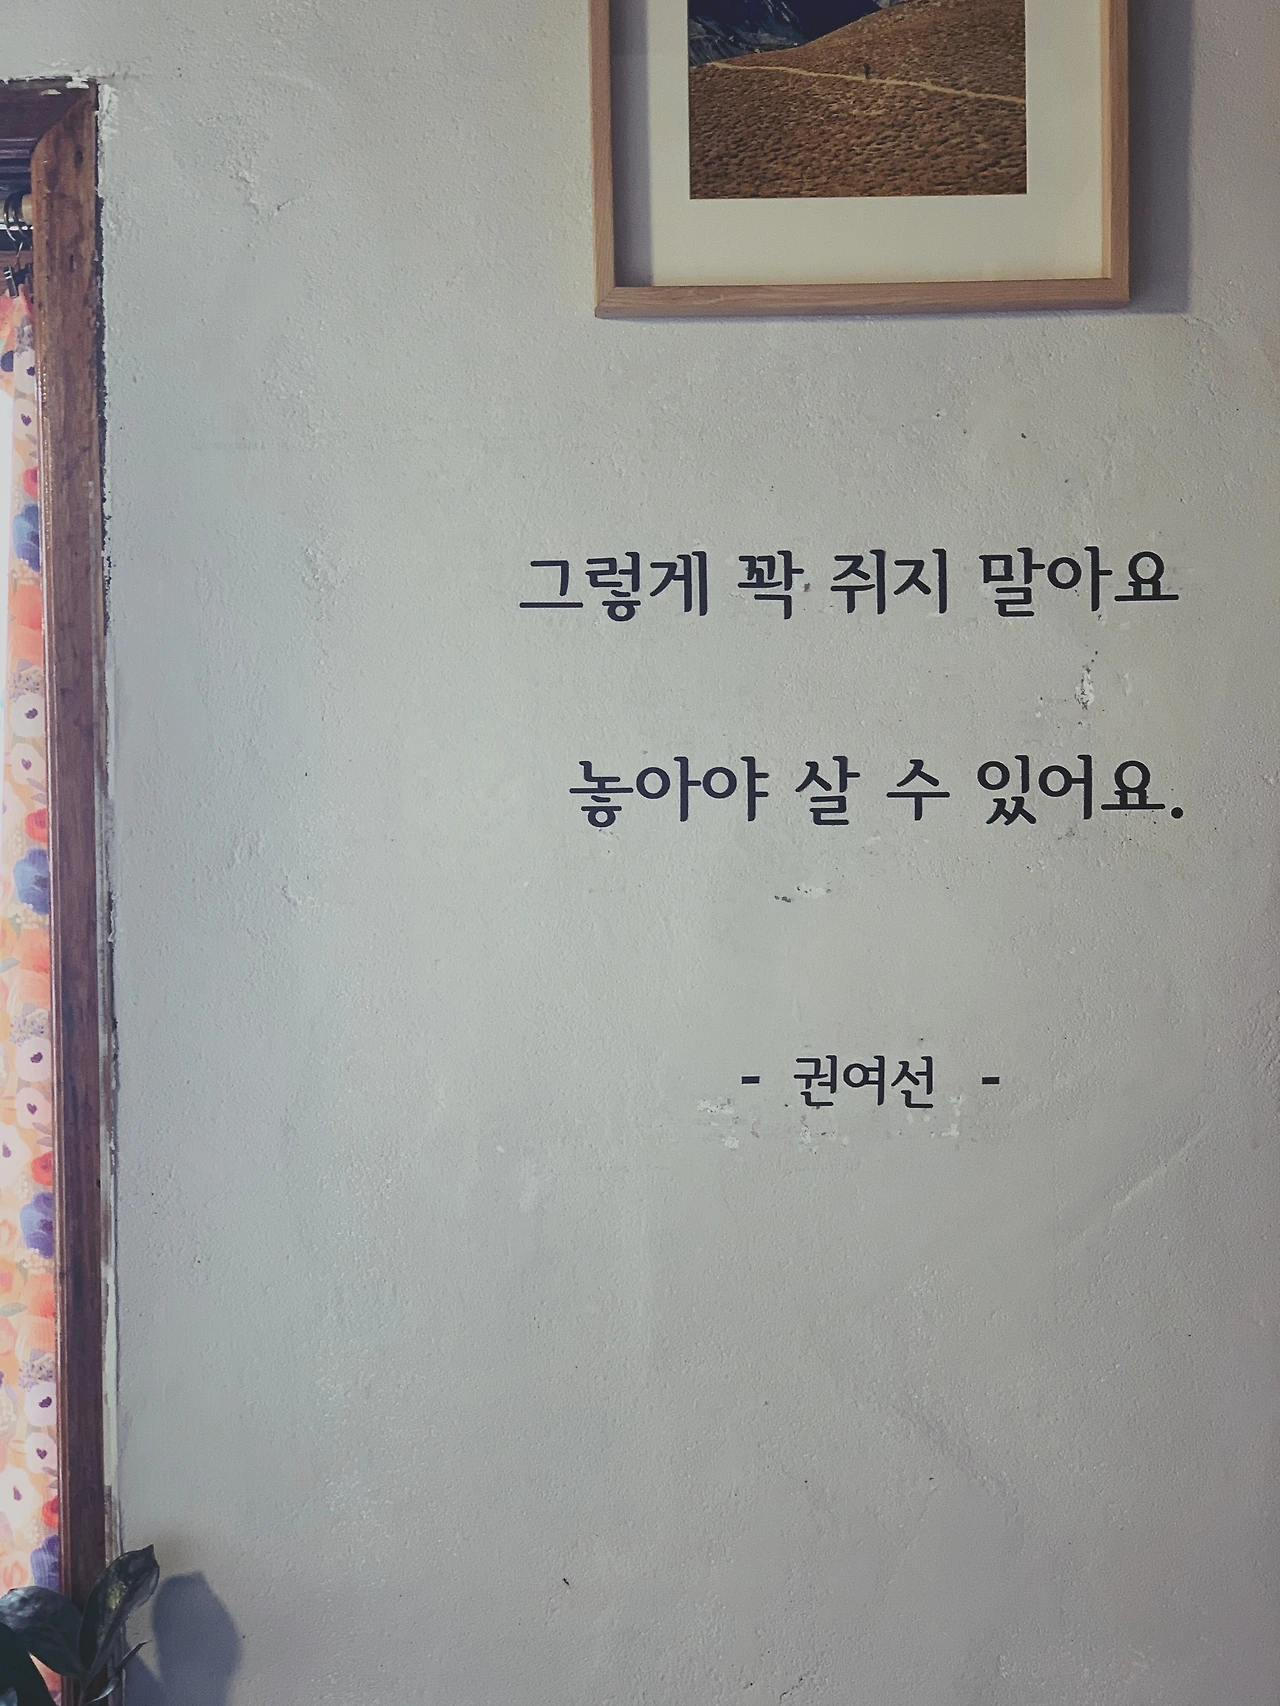 그렇게 꽉 쥐지 말아요
놓아야 살 수 있어요.
- 권여선 -